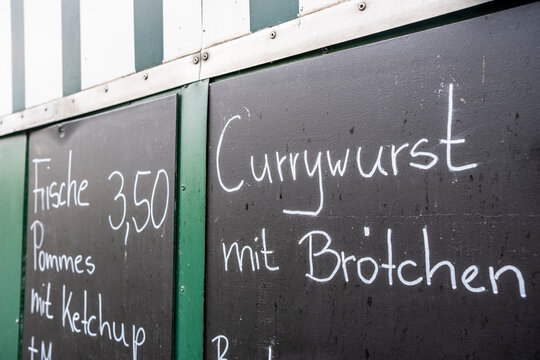 Frische 3,50
Pommes
mit Ketchup
Currywurst
mit Brötchen